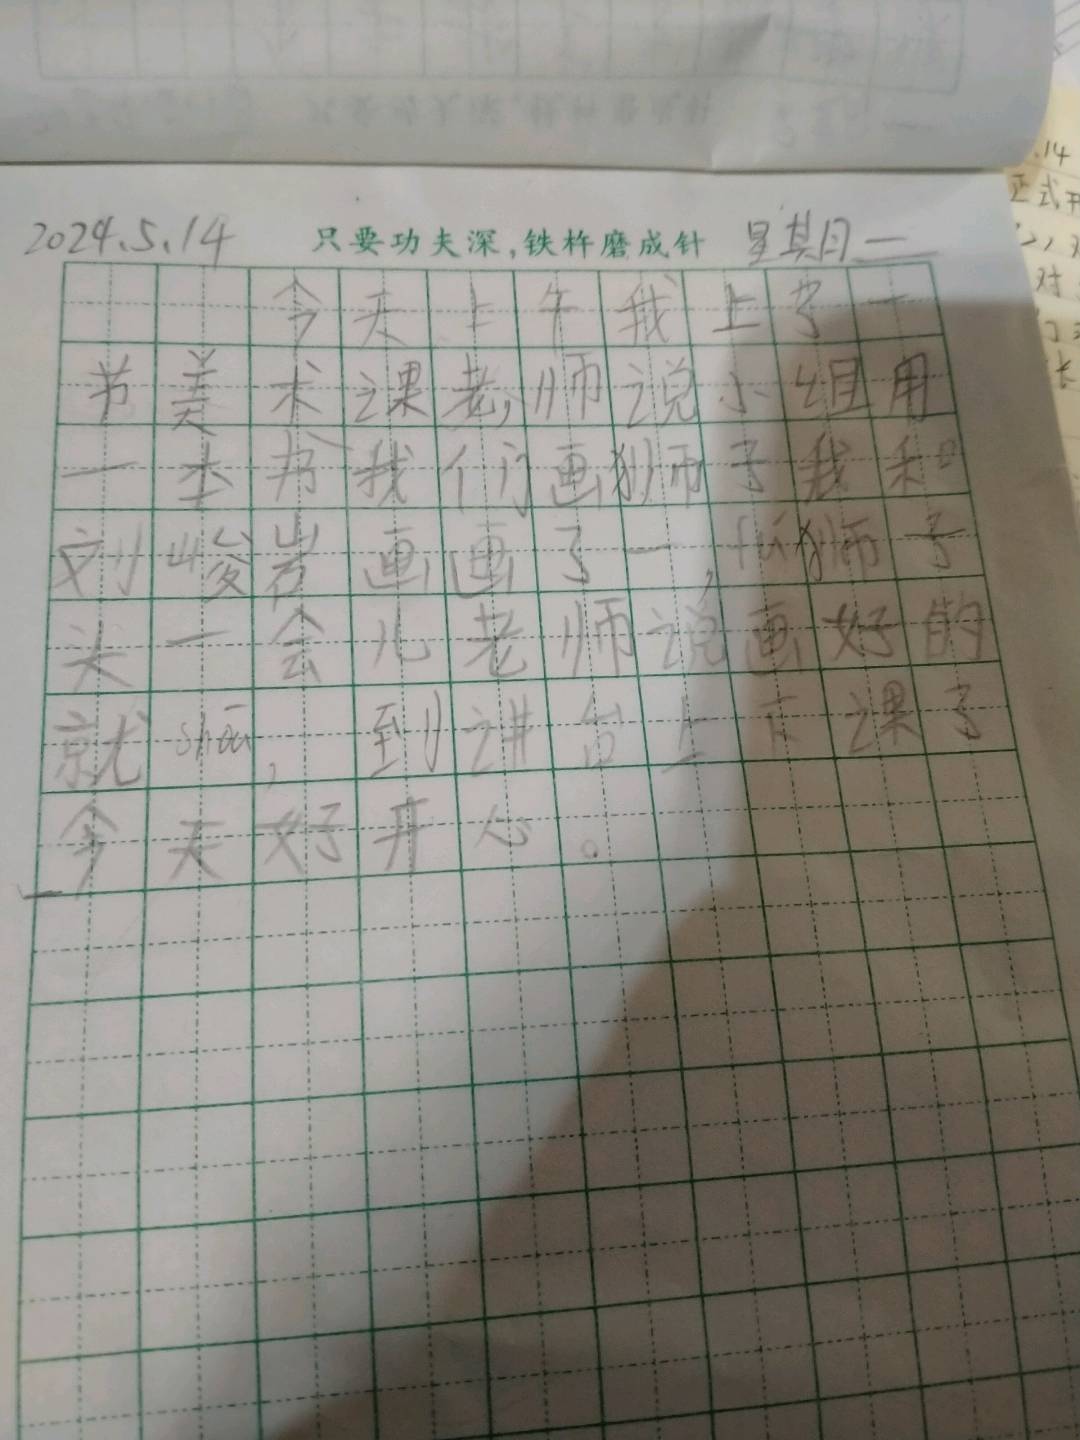 2024.5.14 只要功夫深,铁杵磨成针 星其月一
今天上午我上了一
节美术课老,师说小组用
一本书我们画狮子我和
刘峻岩画画了一,狮子
头一会儿老师说画好的
就shōu,到讲台上下课了
今天好开心。
.14
正式开
对
长